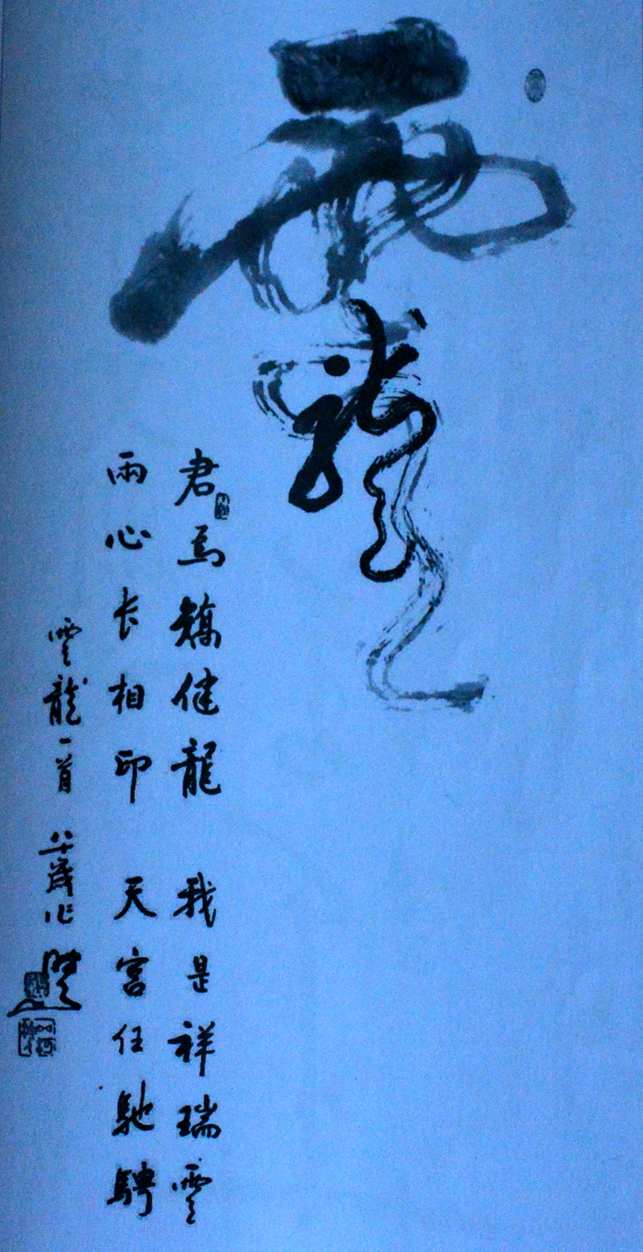 雲龍
君為矯健龍 我是祥瑞雲
兩心长相印 天宮任馳騁
雲龍一首 八十歲作